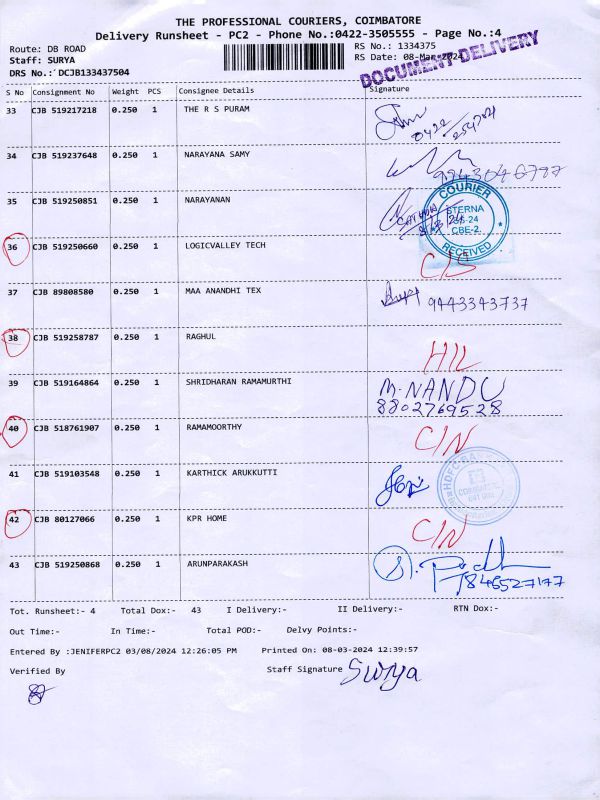 THE PROFESSIONAL COURIERS, COIMBATORE
Delivery Runsheet - PC2 - Phone No.:0422-3505555 - Page No.:4
Route: DB ROAD RS No.: 1334375
Staff: SURYA RS Date: 08-Mar-2024
DRS No.: DCJB133437504
DOCUMENT DELIVERY
S No Consignment No Weight PCS Consignee Details Signature
33 CJB 519217218 0.250 1 THE R S PURAM
0422/
34 CJB 519237648 0.250 1 NARAYANA SAMY
35 CJB 519250851 0.250 1 NARAYANAN
COURIER
STERNA
CBE-2.
RECEIVED
36 CJB 519250660 0.250 1 LOGICVALLEY TECH
37 CJB 89808580 0.250 1 MAA ANANDHI TEX 9443343737
38 CJB 519258787 0.250 1 RAGHUL
39 CJB 519164864 0.250 1 SHRIDHARAN RAMAMURTHI M.NANDU
8802769528
40 CJB 518761907 0.250 1 RAMAMOORTHY C/N
41 CJB 519103548 0.250 1 KARTHICK ARUKKUTTI
42 CJB 80127066 0.250 1 KPR HOME C/N
43 CJB 519250868 0.250 1 ARUNPARAKASH
Tot. Runsheet:- 4 Total Dox:- 43 I Delivery:- II Delivery:- RTN Dox:-
Out Time:- In Time:- Total POD:- Delvy Points:-
Entered By :JENIFERPC2 03/08/2024 12:26:05 PM Printed On: 08-03-2024 12:39:57
Verified By Staff Signature Surya